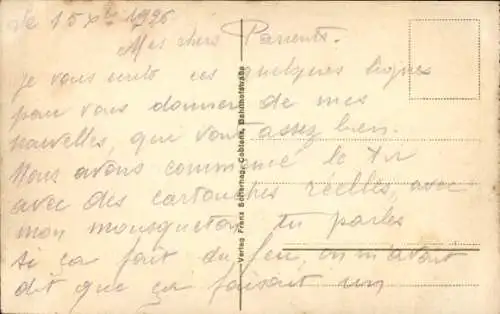 le 15 Xbre 1926
Mes chers Parents.
Je vous écris ces quelques lignes
pour vous donner de mes
nouvelles, qui vont assez bien.
Nous avons commencé le tir
avec des cartouches réelles, avec
mon mousqueton tu parles
si ça fait du feu, on m'avait
dit que ça faisait un
Verlag Franz Bahnhofstraße, Coblenz